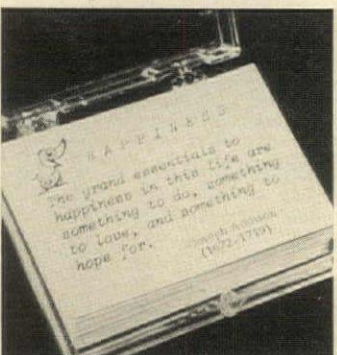 HAPPINESS
The grand essentials to
happiness in this life are
something to do, something
to love, and something to
hope for.
Joseph Addison
(1672-1719)